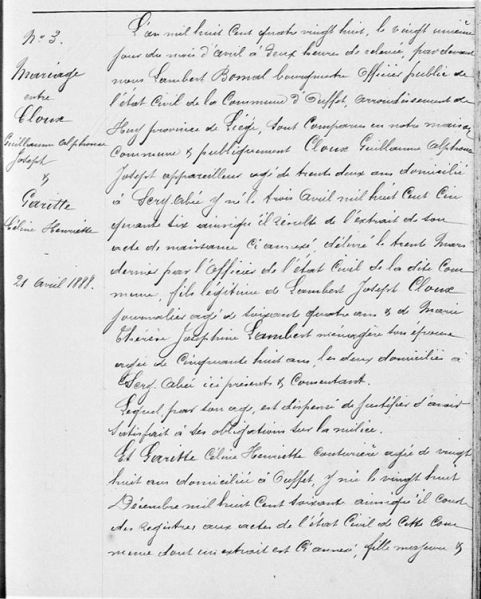 N° 3.
Mariage
entre
Cloux
Guillaume Alphonse
Joseph
&
Garitte
Céline Henriette
21 avril 1888.
L'an mil huit Cent quatre vingt huit, le vingt unième
jour du mois d'avril à deux heures de relevée, par devant
nous Lambert Bomal bourgmestre Officier public de
l'état Civil de la Commune d'Ouffet, arrondissement de
Huy province de Liége, sont Comparus en notre maison
Commune & publiquement Cloux Guillaume Alphonse
Joseph appareilleur agé de trente deux ans domicilié
à Scry-Abée y né le trois Avril mil huit Cent Cin
quante six ainsi qu'il résulte de l'extrait de son
acte de naissance Ci annexé, délivré le trente Mars
dernier par l'Officier de l'état Civil de la dite Com
mune, fils légitime de Lambert Joseph Cloux
journalier agé de soixante quatre ans & de Marie
Thérèse Joséphine Lambert ménagère son épouse
agée de Cinquante huit ans, les deux domiciliés à
Scry-Abée ici présents & Consentant.
Lequel, par son age, est dispensé de justifier d'avoir
satisfait à ses obligations sur la milice.
Et Garitte Céline Henriette couturière agée de vingt
huit ans domiciliée à Ouffet, y née le vingt huit
Décembre mil huit Cent soixante ainsi qu'il conste
des registres aux actes de l'état Civil de Cette Com
mune dont un extrait est Ci annexé, fille majeure &